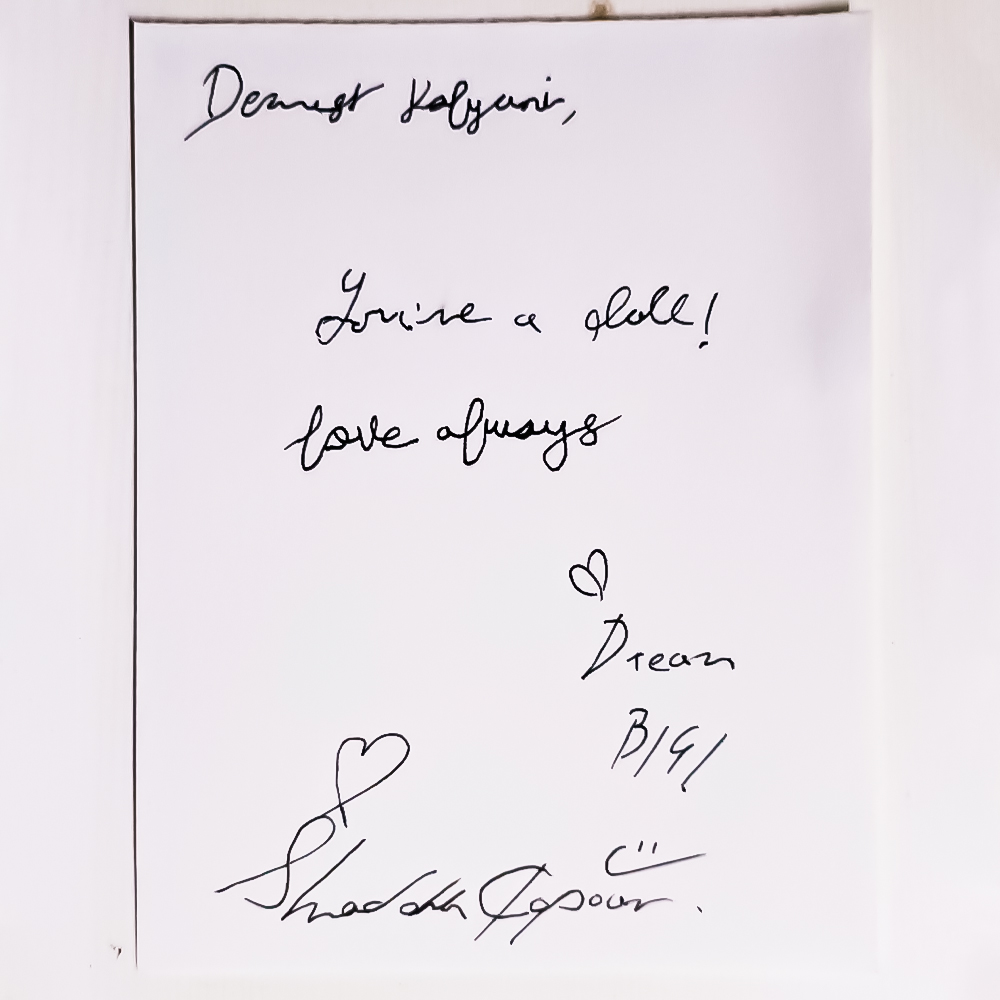 Dearest Kalyani,
You're a doll!
Love always
Dream
BIG!
Shraddha Kapoor.